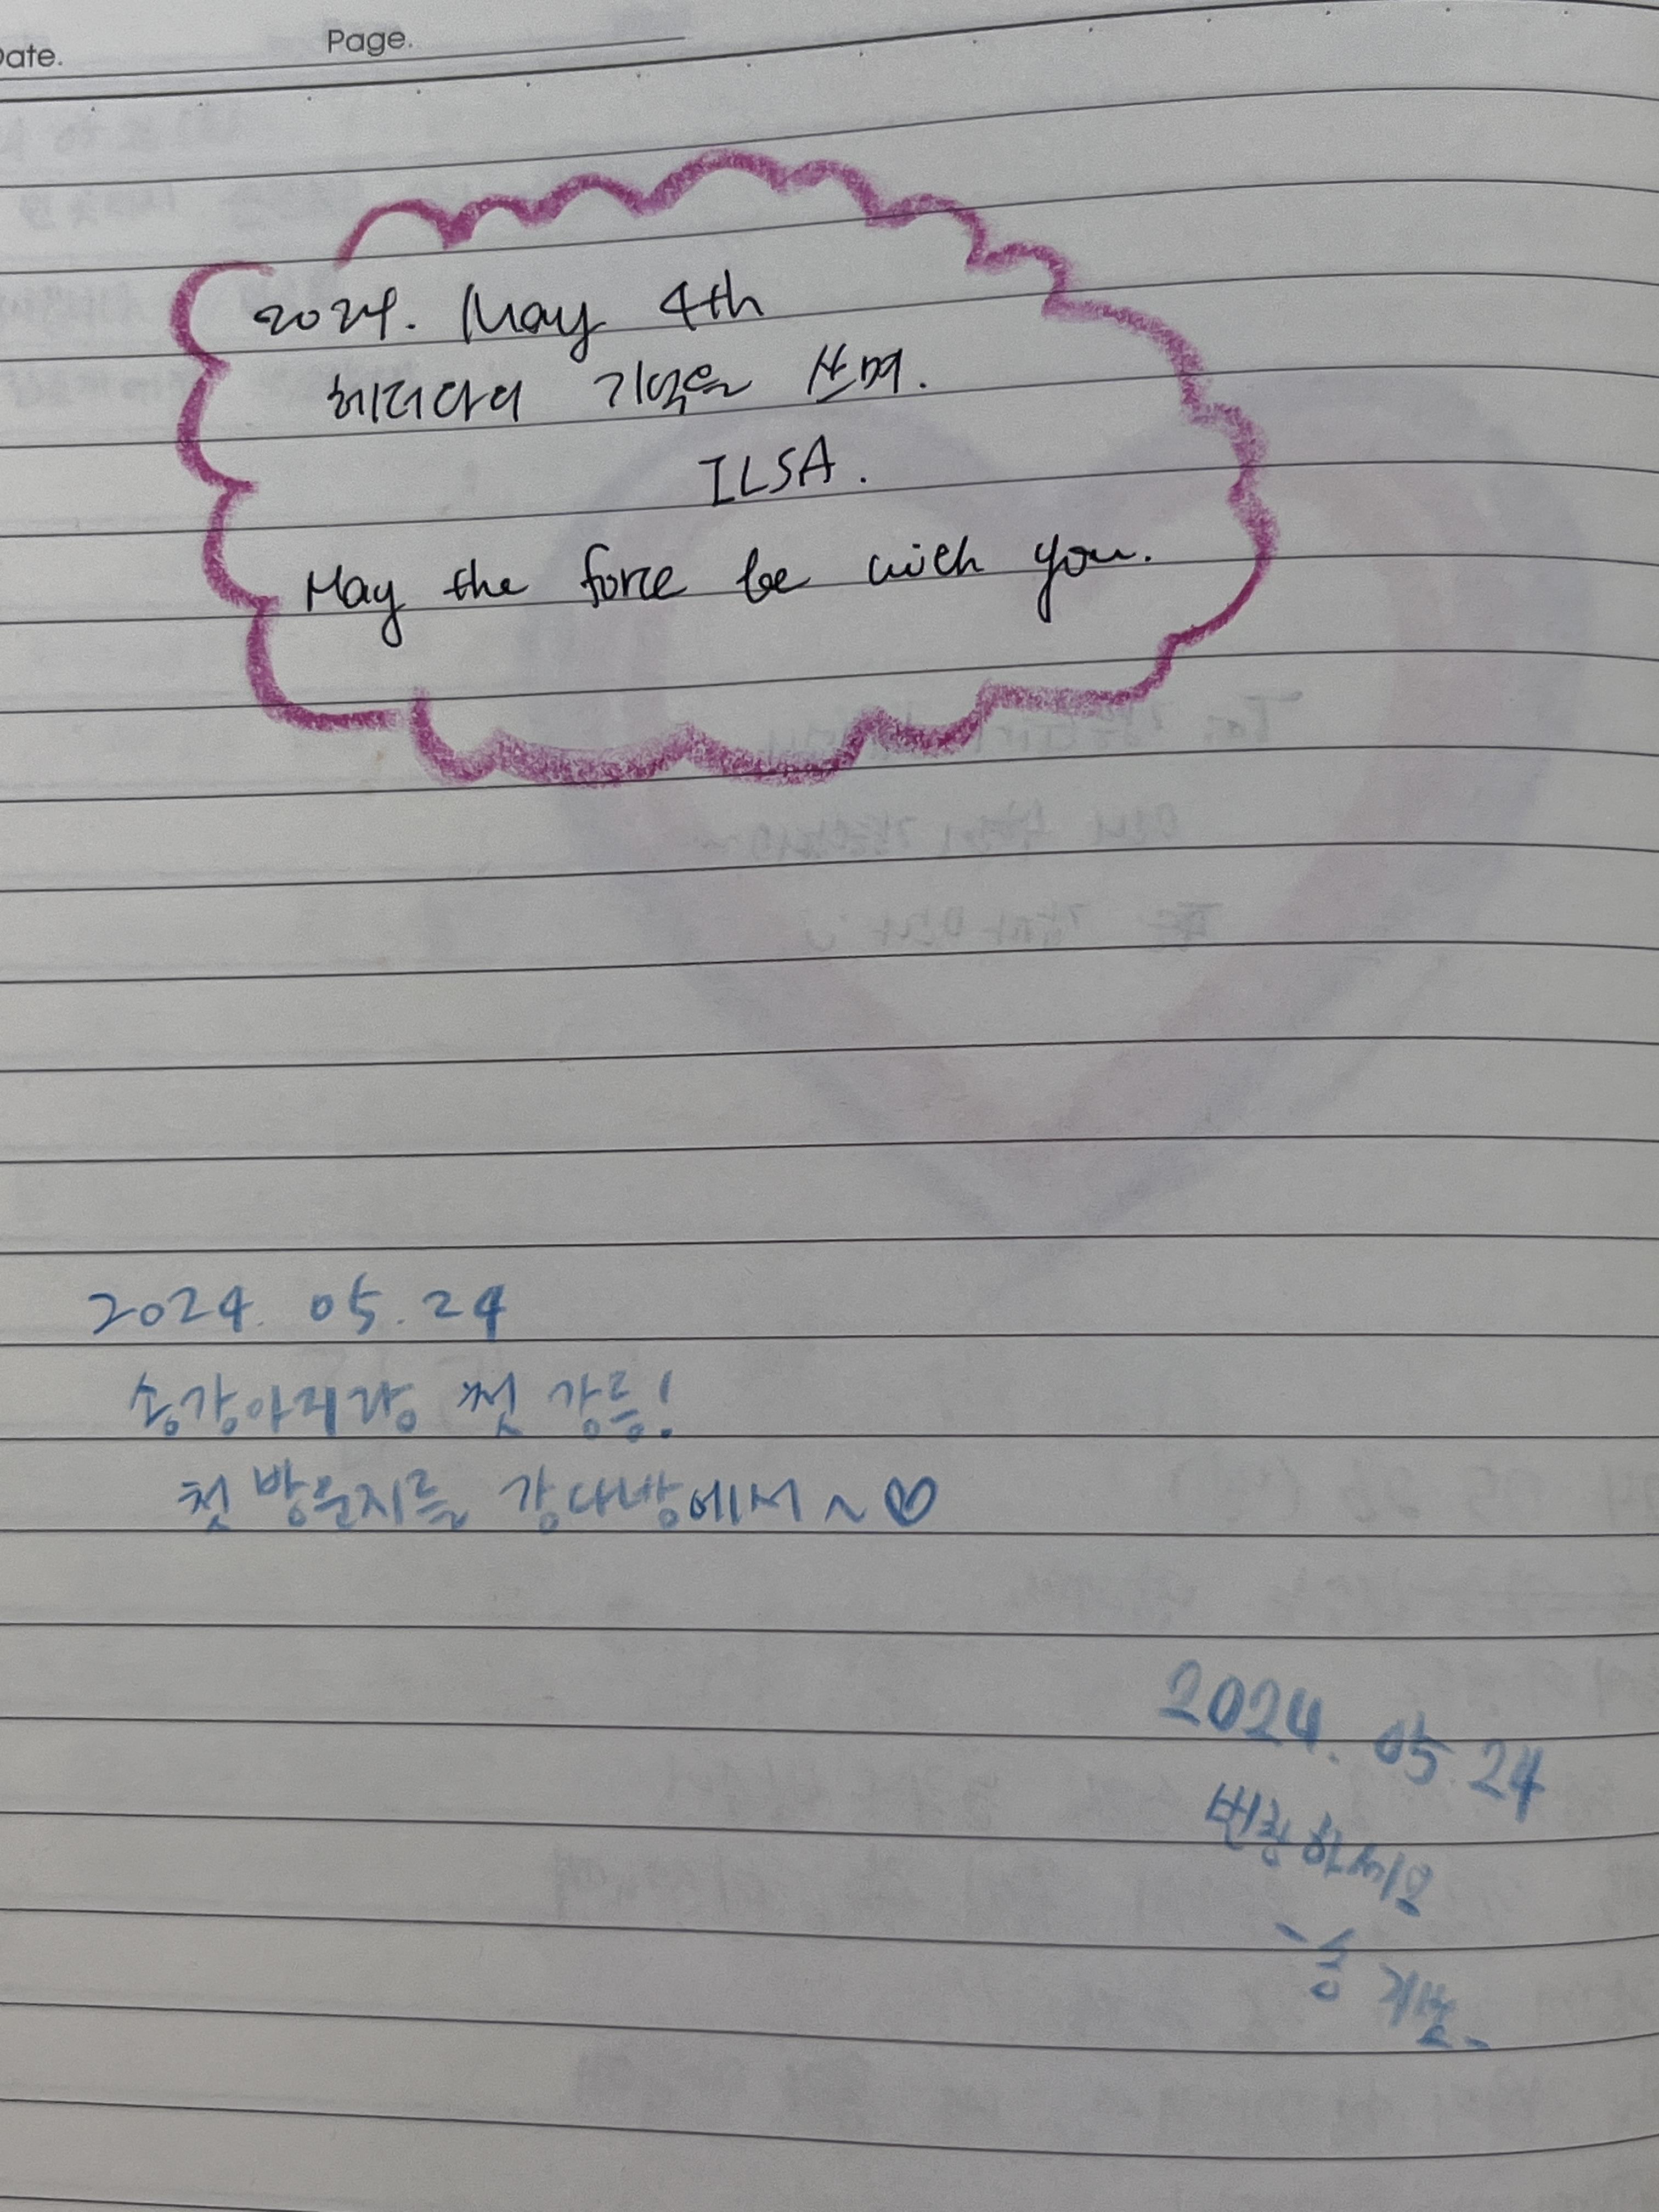 Date.
Page.
2024. May 4th
헤더다의 기억을 쓰며.
ILSA.
May the force be with you.
2024. 05. 24
송강아지랑 첫 강릉!
첫 방문지를 강다방에서~♡
2024. 05. 24
변강쇠
송